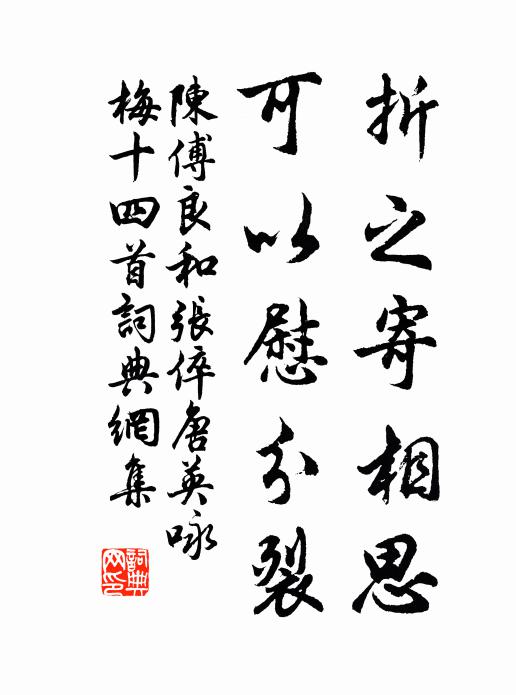 折之寄相思
可以慰分裂
陳傅良和張倅唐英咏
梅十四首詞典網集
詞典
网印